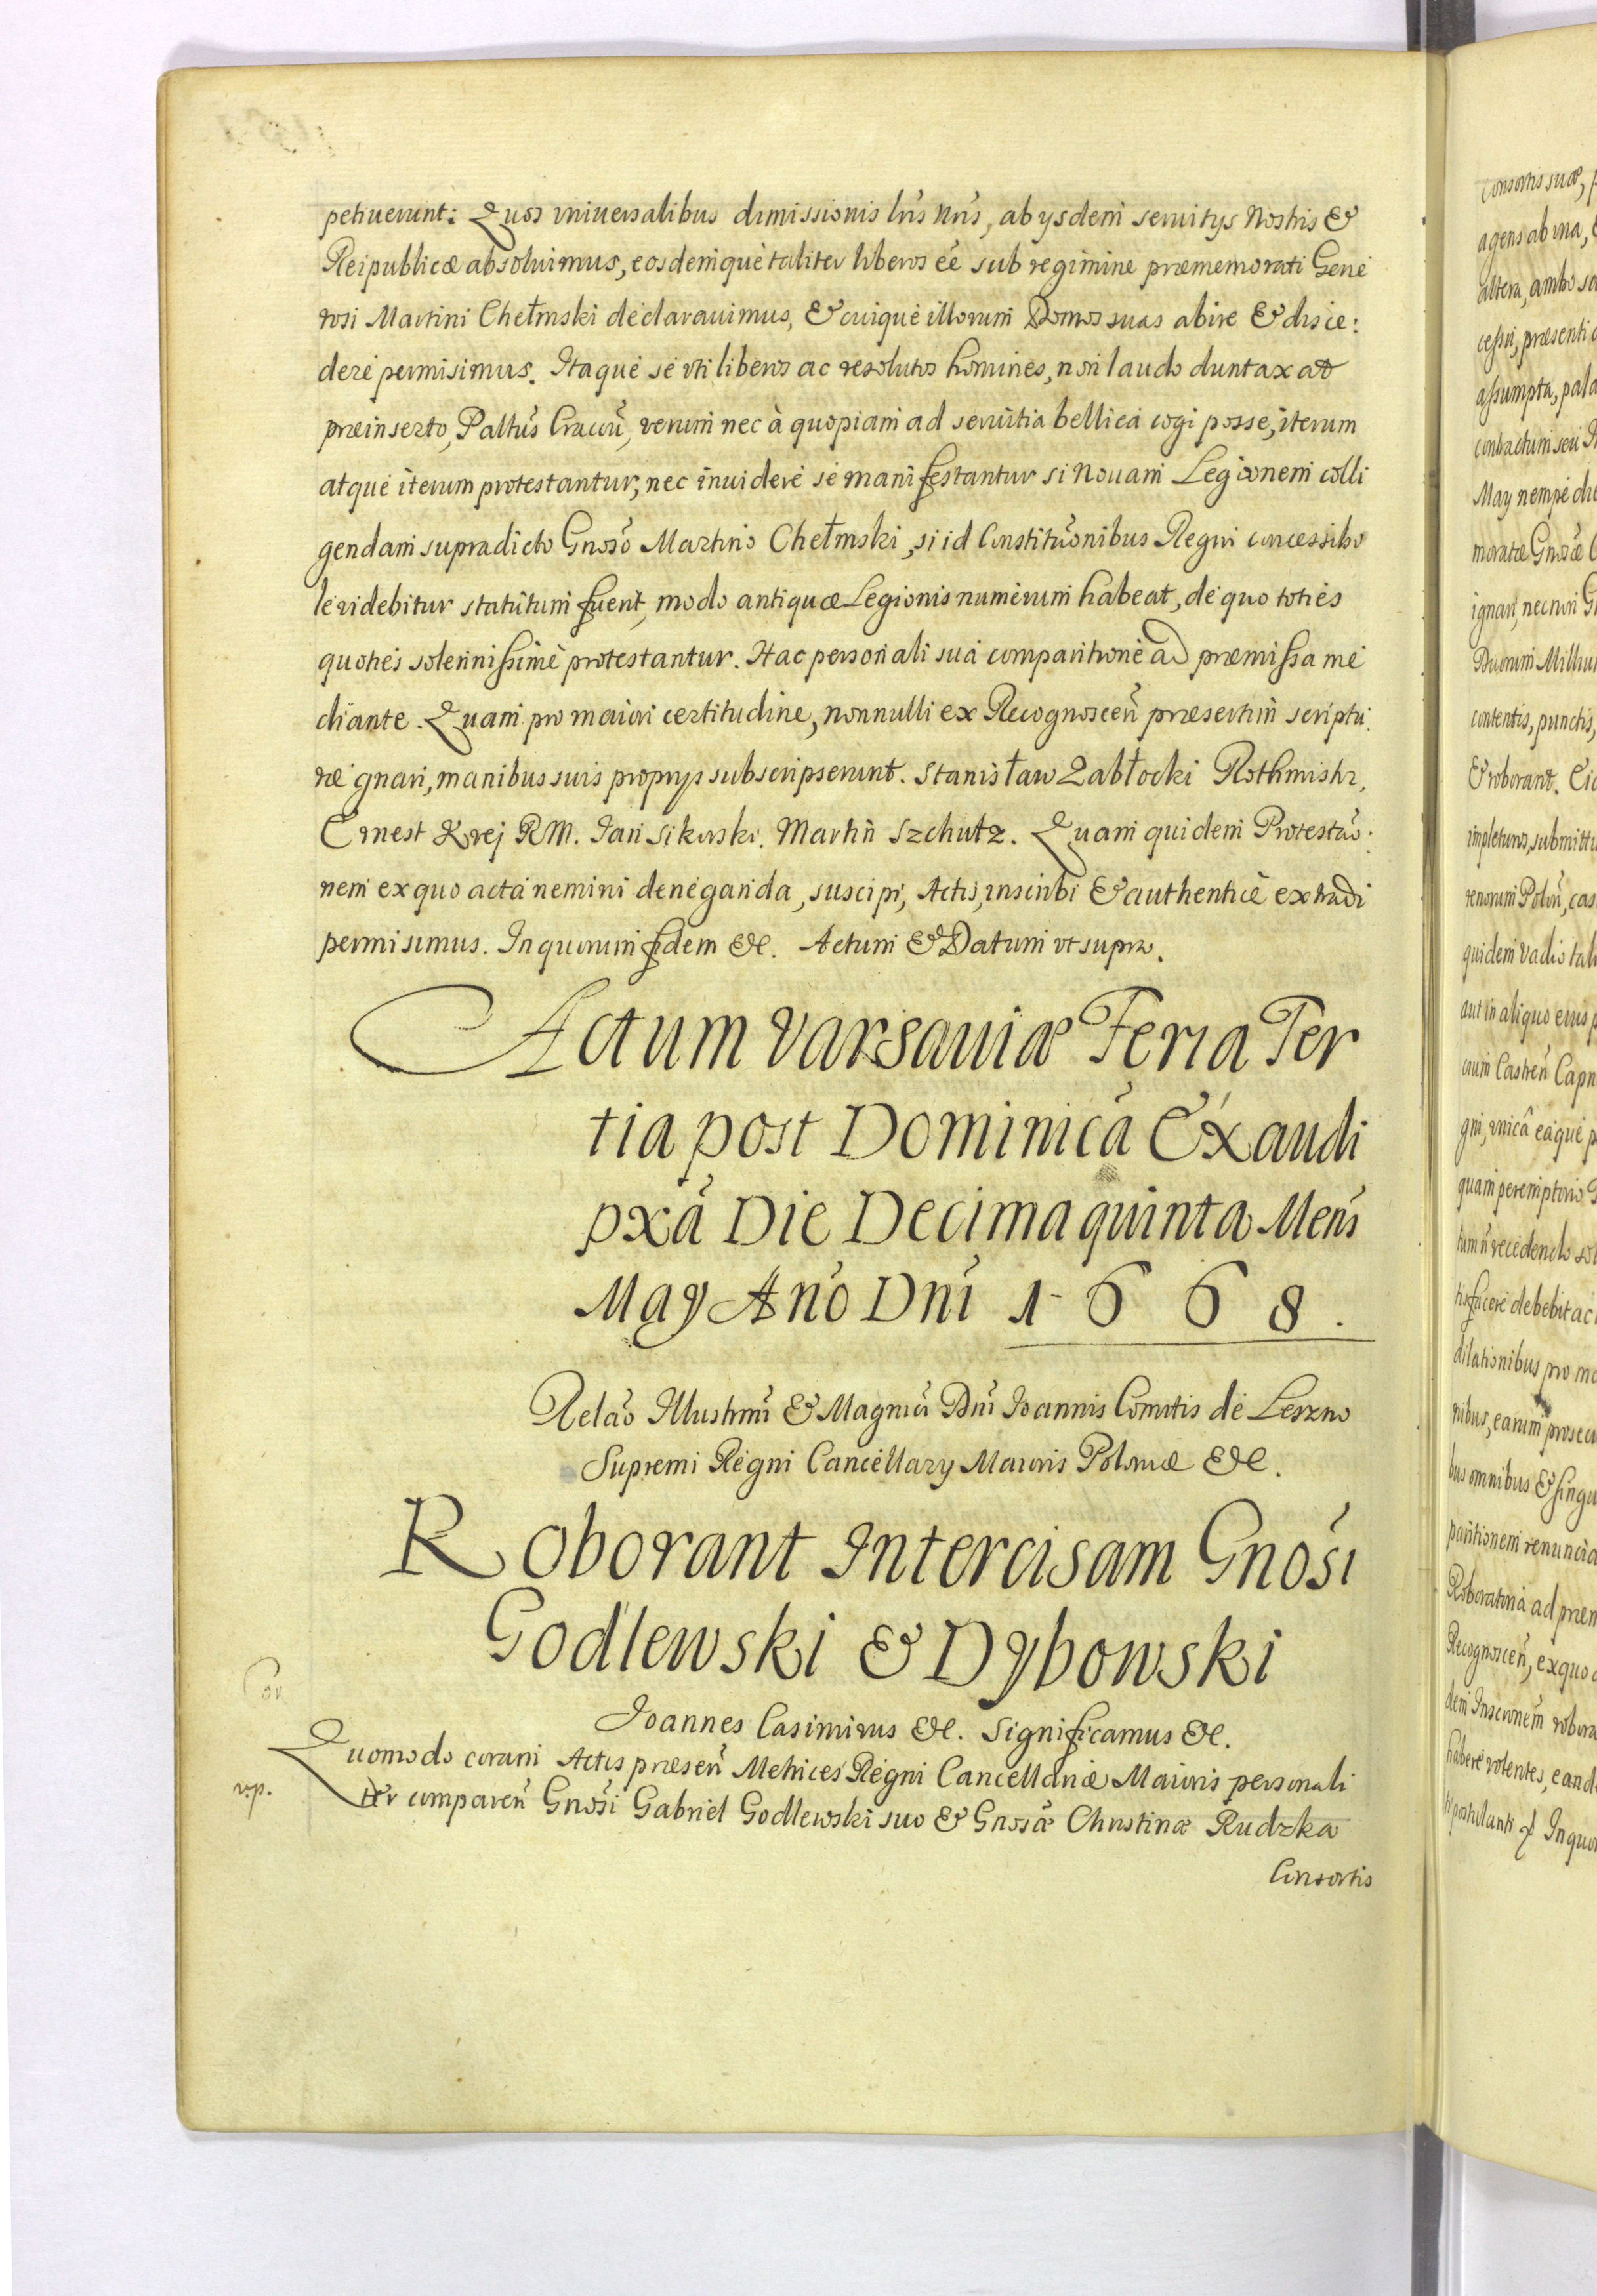 petiuerunt: Quos vniuersalibus dimissionis lrīs nrīs, ab ysdem seruitys Nostris &
Reipublicæ absoluimus, eosdemque taliter liberos eē sub regimine præmemorati Gene
rosi Martini Chełmski declarauimus, & cuique illorum Domos suas abire & disce:
dere permisimus. Itaque se vti liberos ac resolutos homines, non laudo duntaxat
præinserto, Paltūs Cracoū, verum nec à quopiam ad seruitia bellica cogi posse, iterum
atque iterum protestantur, nec inuidere se manifestantur si Nouam Legionem colli
gendam supradicto Gnoso Martino Chełmski, si id Constituōnibus Regni concessibi
le videbitur statutum fuerit, modo antiquæ Legionis numerum habeat, de quo toties
quoties solennissime protestantur. Hac personali sua comparitione ad præmissa me
diante. Quam pro maiori certitudine, nonnulli ex Recognosceñ præsertim scriptu:
ræ gnari, manibus suis proprys subscripserunt. Stanisław Zabłocki Rothmistr,
Ernest Krej RM. Jan Sikorski. Martin Szchutz. Quam quidem Protestaō:
nem ex quo acta nemini deneganda, suscipi, Actis, inscribi & authentice extradi
permisimus. In quorum fidem &c. Actum & Datum vt supra.
Actum Varsauiæ Feria Ter
tia post Dominicā Exaudi
pxā Die Decima quinta Mens
May Año Dñi 1668.
Relaō Illustrmi & Magnici Dñi Joannis Comitis de Leszno
Supremi Regni Cancellary Maioris Poloniæ &c.
Roborant Intercisam Gnosi
Godlewski & Dybowski
Cor
Joannes Casimirus &c. Significamus &c.
Quomodo coram Actis præseñ Metrices Regni Cancellariæ Maioris personali
ter compareñ Gnosi Gabriel Godlewski suo & Gnosæ Christinæ Rudzka
Consortis
consortis suæ,
agens ab vna,
altera, ambo
præsenti
assumpta,
contractum seu
May nempe
moratæ Gnosæ
ignari, necnon
Duorum
contentis, punctis,
& roborant.
impleturos,
quidem vadio
aut in aliquo eius
Castreñ Capn
gni, vnica eaque
quam peremptorio
recedendo
debebit ac
dilationibus pro
nibus, earum
bus omnibus &
paritionem
Roboratoria ad
Recognosceñ, ex quo
dem
habere volentes,
postulanti